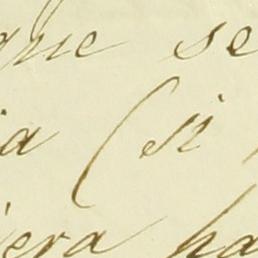 que se
ia (si
iera ha